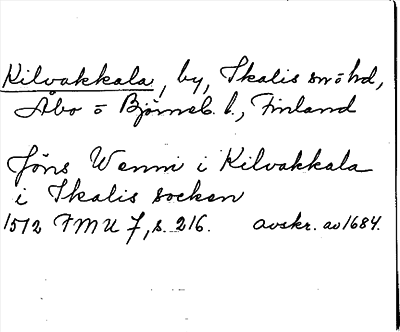 Kilvakkala, by, Ikalis snöhd,
Åbo o Björneb. l., Finland
Jöns Wenni i Kilvakkala
i Ikalis socken
1512 FMU 7, s. 216. avskr. av 1684.